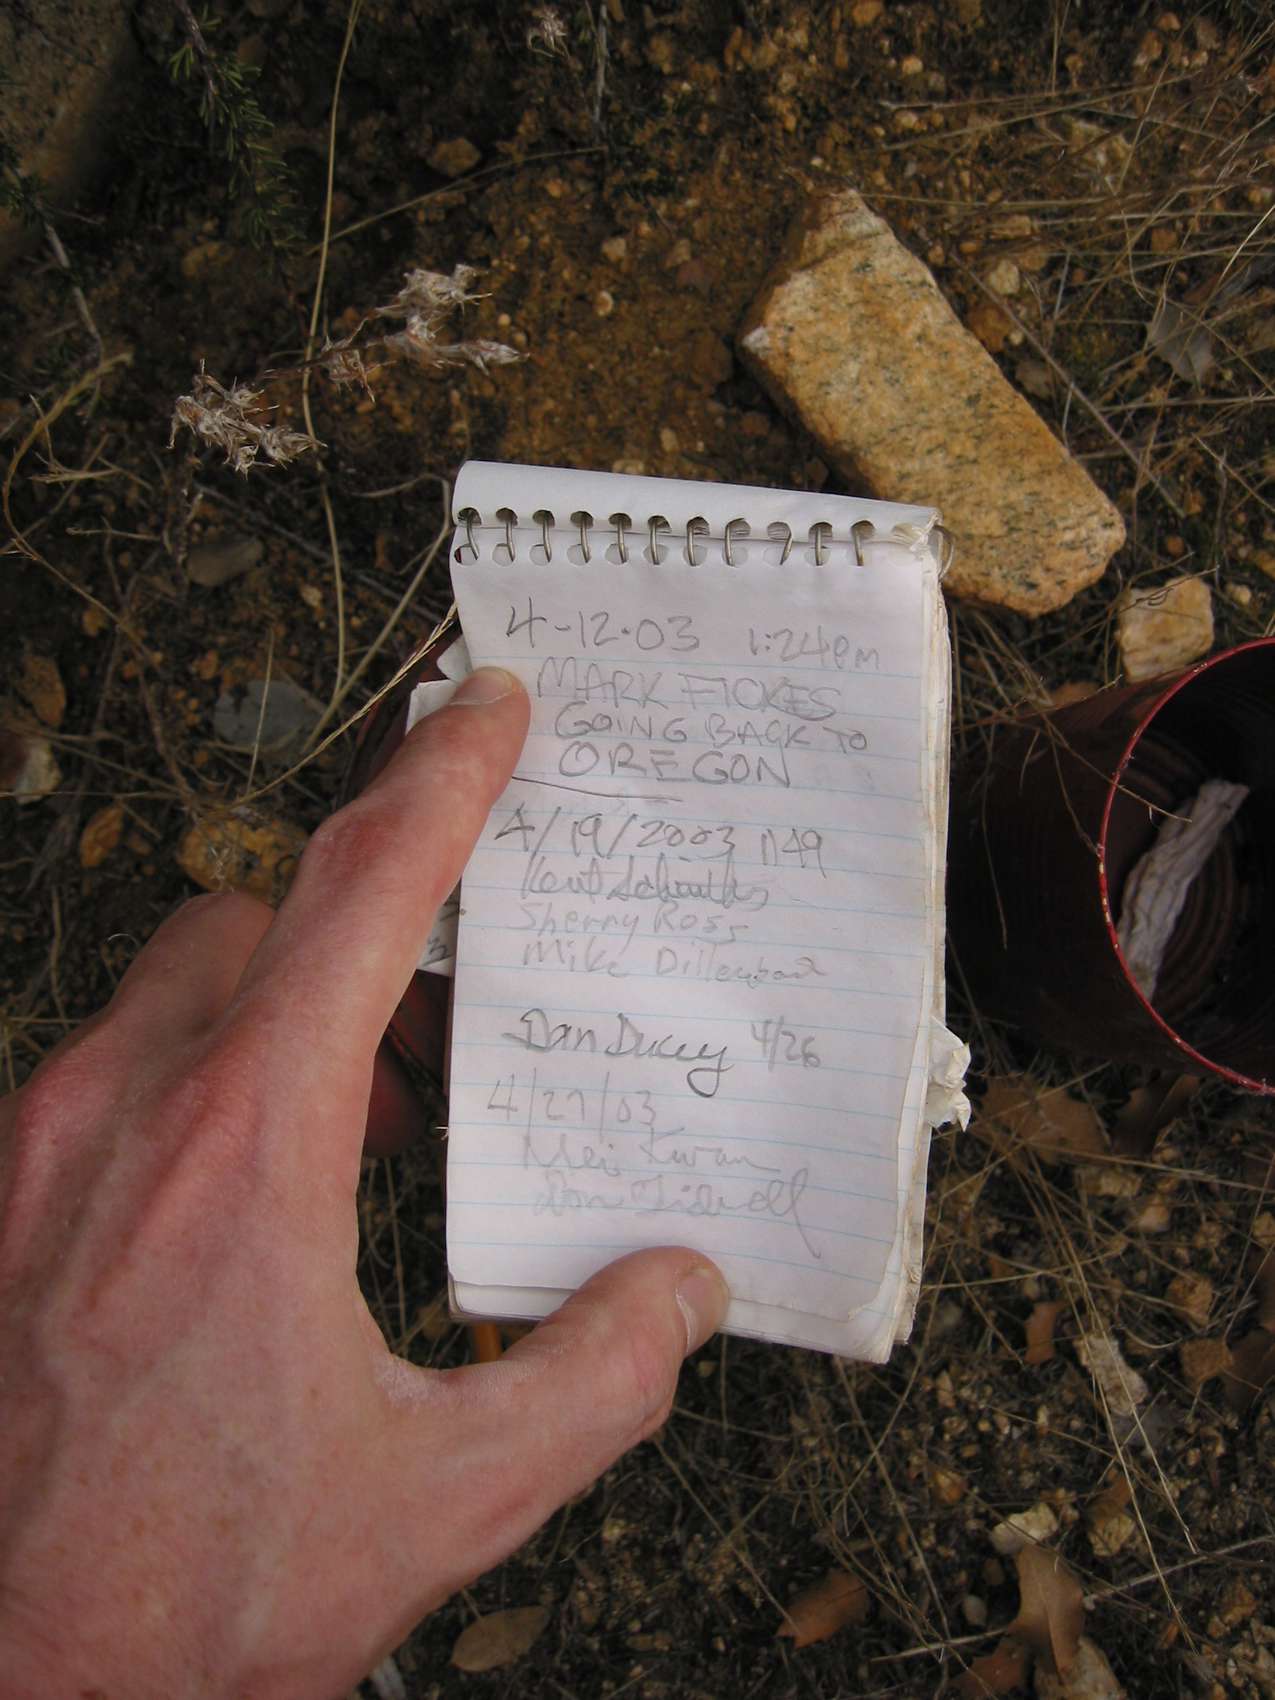 4-12-03 1:24pm
MARK FICKES
GOING BACK TO
OREGON
4/19/2003 1149
Kent
Sherry Ross
Mike
Dan Ducey 4/26
4/27/03
Kwan